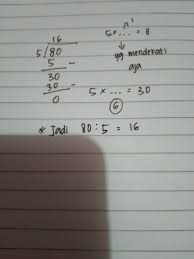 16
5 √80 5 × ... = 8
5 – yg mendekati
30 aja
30 –
0 5 × ... = 30
6
* Jadi 80 : 5 = 16